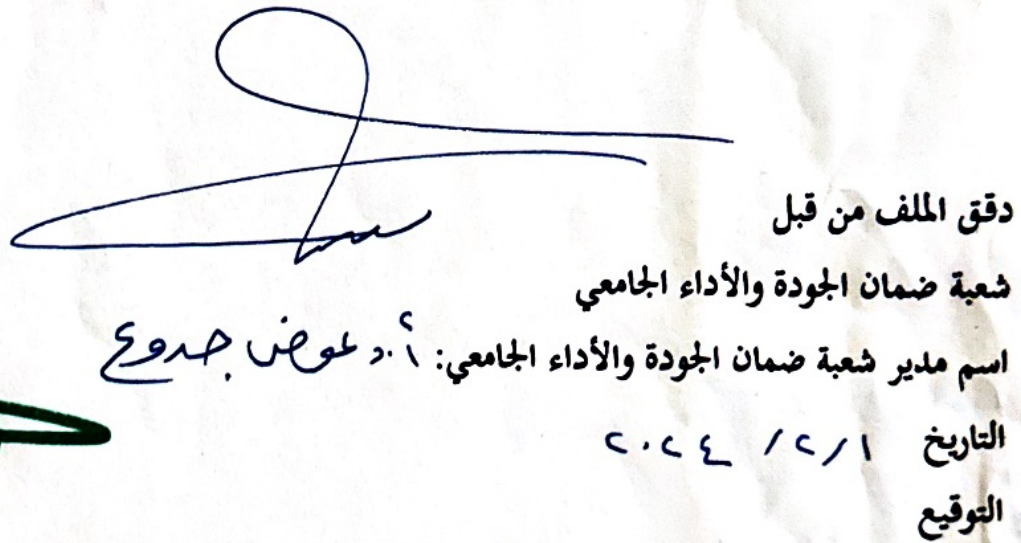 دقق الملف من قبل
شعبة ضمان الجودة والأداء الجامعي
اسم مدير شعبة ضمان الجودة والأداء الجامعي: أ.د عوض جدوع
التاريخ ٢٠٢٤/٢/١
التوقيع